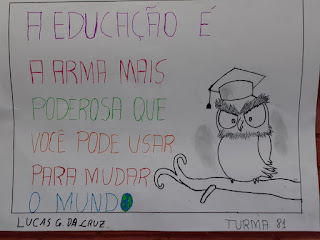 A EDUCAÇÃO É
A ARMA MAIS
PODEROSA QUE
VOCÊ PODE USAR
PARA MUDAR
O MUNDO
LUCAS G. DA CRUZ TURMA 81